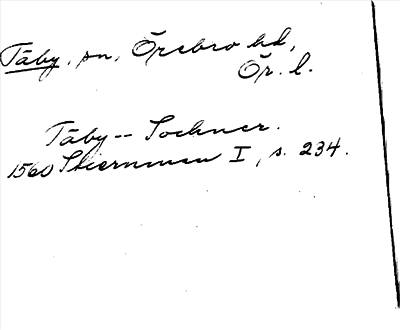 Täby, sn, Örebro hd,
Ör. l.
Täby -- Sochner.
1560 Stiernman I, s. 234.